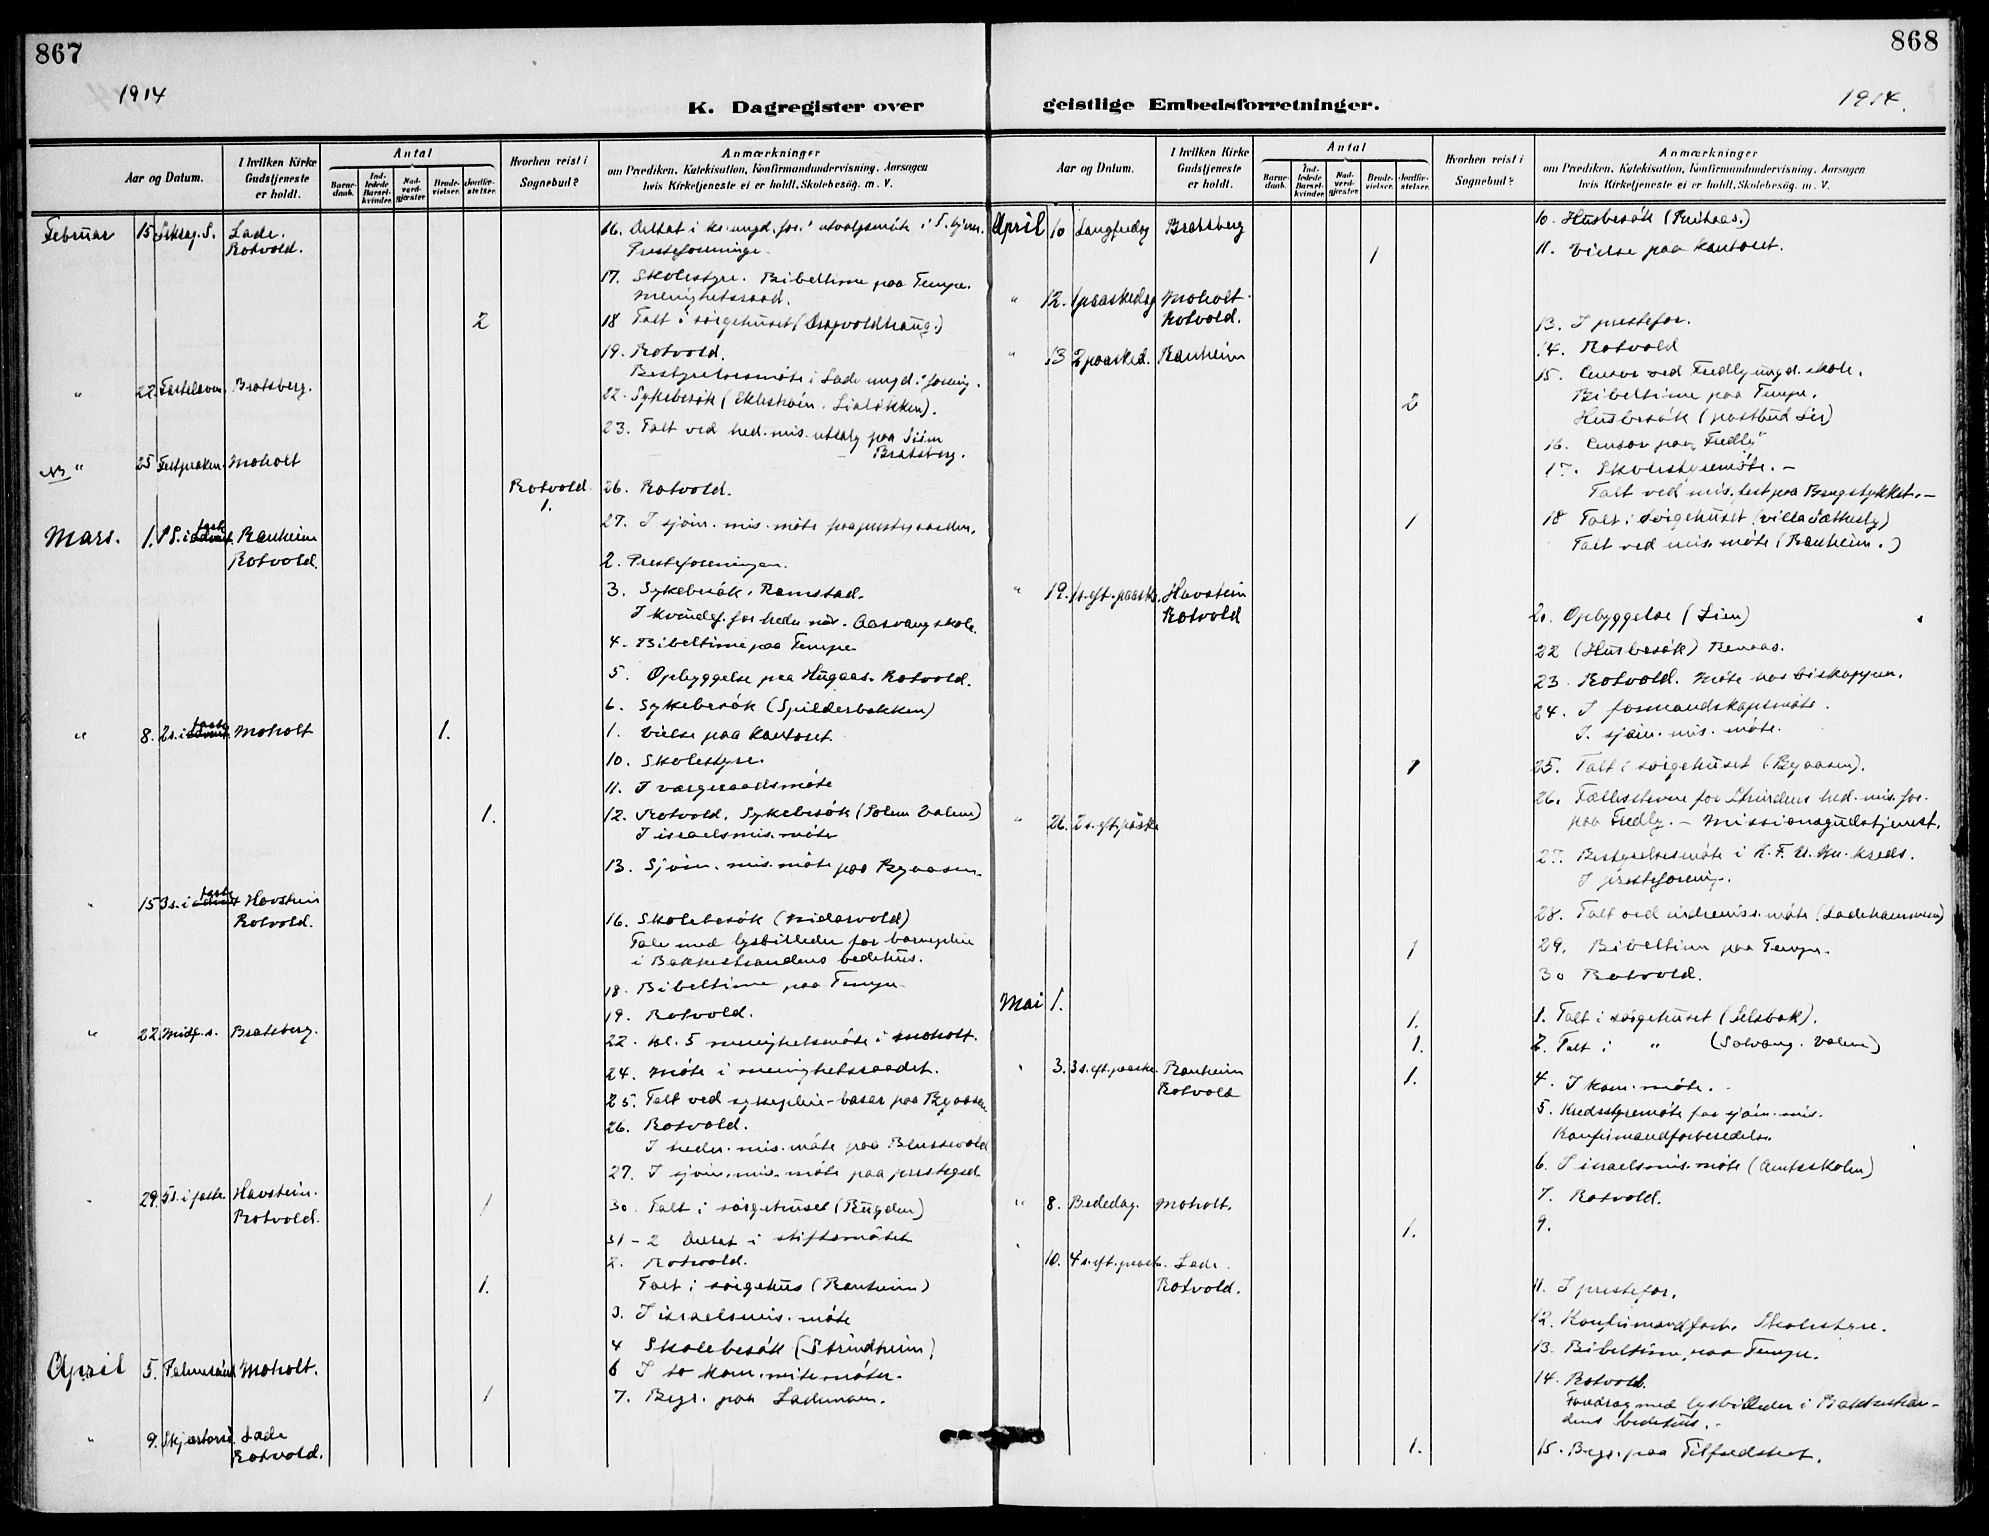 867
1914
K. Dagregister over
Aar og Datum.
I hvilken Kirke Gudstjeneste er holdt.
Antal
Barnedaab.
Indledede Barselkvinder.
Nadverdgjæster.
Brudevielser.
Jordfæstelser.
Hvorhen reist i Sognebud?
Anmærkninger
om Prædiken, Katekisation, Konfirmandundervisning, Aarsagen
hvis Kirketjeneste ei er holdt, Skolebesøg. m. V.
Februar 15 S. Lade.
Rotvold.
16. Deltat i
Presteforeninge
17. Skolestyre. Bibeltime paa Tempe.
Menighetsraad.
2 18 Talt i sørgehuset (Dragvoldhaug.)
19. Rotvold.
Bestyrelsesmøte i Lade ungd. forenig.
" 22. Fastelavn. Bratsberg.
22. Sykebesøk (
23. Talt ved hed. mis. utsalg paa
Bratsberg.
" 25 Moholt
Rotvold 1. 26. Rotvold.
27. I sjøm. mis. møte paa prestegaarden.
Mars. 1. 1 S. i fast Ranheim
Rotvold.
2. Presteforeningen.
3. Sykebesøk. Ramstad.
I kvindef. for hedn. mis. Aasvang skole.
4. Bibeltime paa Tempe
5. Opbyggelse paa Hugaas. Rotvold.
6. Sykebesøk (Spilderbakken)
" 8. 2 s. i faste Moholt 1. 1. Vielse paa kontoret.
10. Skolestyre.
11. I vergeraadsmøte
1. 12. Rotvold. Sykebesøk (Solem Valene)
I israelsmis. møte
13. Sjøm. mis. møte paa Byaasen.
" 15 3 s. i faste Havstein
Rotvold.
16. Skolebesøk (Nidarvold)
Tale med lysbilleder for barnepleie
i Bakkestrandens bedehus.
18. Bibeltime paa Tempe
19. Rotvold.
" 22. Midf. s. Bratsberg.
22. kl. 5 menighetsmøte i Moholt.
24. Møte i menighetsraadet.
25. Talt ved sykepleie-basar paa Byaasen
26. Rotvold.
I hedn. mis. møte paa
27. I sjøm. mis. møte paa prestegd.
" 29. 5 s. i faste. Havstein.
Rotvold.
1 30. Talt i sørgehuset (Rugden)
31-2 Deltat i stiftsmøtet
2. Rotvold.
1. Talt i sørgehus (Ranheim)
3. I israelsmis. møte
4 Skolebesøk (Strindheim)
April 5. Palmesønd. Moholt.
6 I to kom.mitemøter.
1 7. Begr. paa Lademoen.
" 9. Skjærtorsd. Lade
Rotvold.
868
1914.
geistlige Embedsforretninger.
Aar og Datum.
I hvilken Kirke Gudstjeneste er holdt.
Antal
Barnedaab.
Indledede Barselkvinder.
Nadverdgjæster.
Brudevielser.
Jordfæstelser.
Hvorhen reist i Sognebud?
Anmærkninger
om Prædiken, Katekisation, Konfirmandundervisning, Aarsagen
hvis Kirketjeneste ei er holdt, Skolebesøg. m. V.
April 10 Langfredag Bratsberg
10. Husbesøk
1 11. Vielse paa kontoret.
" 12. 1 paaskedag Moholt
Rotvold.
13. I prestefor.
" 13 2 paasked. Ranheim
14. Rotvold
15. Censor ved Fredly ungd. skole.
2 Bibeltime paa Tempe.
Husbesøk (postbud Lier)
16. Censor paa "Fredly"
17. Skolestyremøte. -
Talt ved mis. fest paa Bergstykket. -
1 18 Talt i sørgehuset (villa Sætherby)
Talt ved mis. møte (Ranheim.)
" 19. 1 s. eft. paaske. Havstein
Rotvold
20. Opbyggelse (Lien)
22 (Husbesøk)
23. Rotvold. Møte hos biskoppen.
24. I formandskapsmøte.
I. sjøm. mis. møte.
1 25. Talt i sørgehuset (Byaasen).
26. Fællesstevne for Strindens hed. mis. for.
" 26. 2 s. eft. påske
paa Fredly. - Missionsgudstjenest.
27. Bestyrelsesmøte i K. F. U. M. kreds.
I presteforenig.
28. Talt ved indremiss. møte (Ladehammeren)
1 29. Bibeltime paa Tempe.
30 Rotvold.
Mai 1.
1. 1. Talt i sørgehuset (Selsbak).
1. 2. Talt i " (Solvang. Valene)
" 3. 3 s. eft. paaske. Ranheim
Rotvold
1. 4. I kom. møte.
5. Kredsstyremøte for sjøm. mis.
Konfirmandforberedelse.
6. I israelsmis. møte (Amtsskolen)
7. Rotvold.
" 8. Bededag. Moholt.
1. 9.
10. 4 s. eft. paaske. Lade.
Rotvold.
11. I prestefor.
12. Konfirmandforb. Skolestyre.
13. Bibeltime paa Tempe.
14. Rotvold.
Foredrag med lysbilleder i Bakkestran-
dens bedehus. -
1. 15. Begr. paa Tilfredshet.